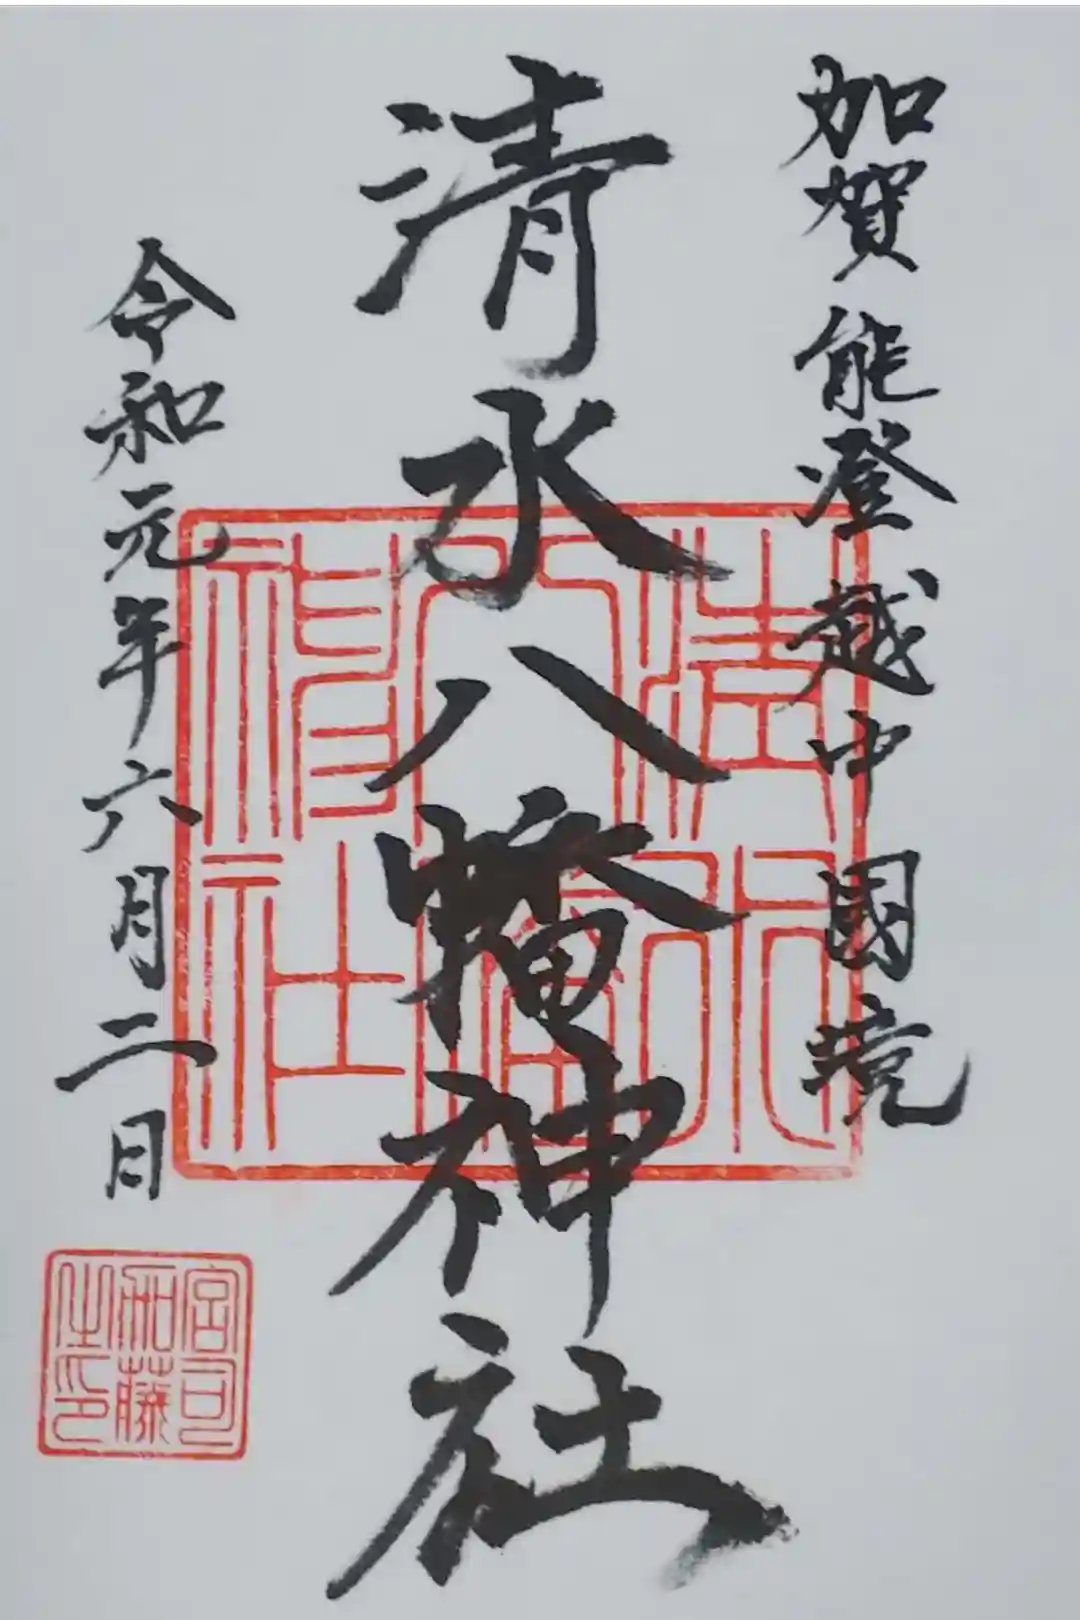 加賀能登越中國境
清水八幡神社
令和元年六月二日
清水
八幡
神社
宮司
加藤
之印